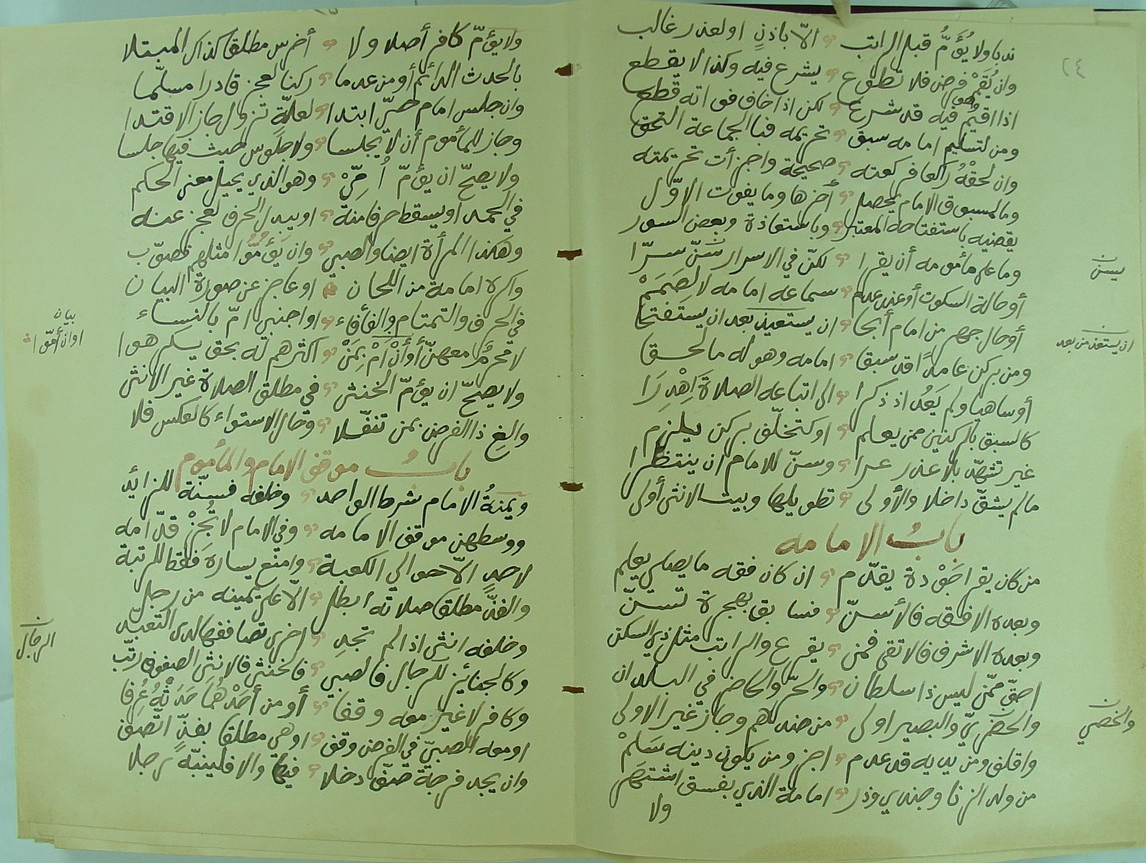 ٢٤
ندبا ولا يؤم قبل الراتب إلا بإذن أو لعذر غالب
وإن يقم فرض فلا تطوع يشرع فيه ولذا لا يقطع
إذا أقيم وهو فيه قد شرع لكن إذا خاف فواته قطع
ومن لتسليم إمامه سبق تحريمه فبالجماعة التحق
وإن لحقه راكعا فركعته صحيحة وأجزأت تحريمته
وما لمسبوق الإمام يحصل آخرها وما يفوت الأول
يقضيه باستفتاحه المعتبر وباستعاذة وبعض السور
وما على مأمومه أن يقرا لكن في الإسرار سن سرا
يسن
أو حالة السكوت أو عند عدم سماعه إمامه لا لصمم
أو حال جهر من إمام أبحا أن يستعيذ بعد أن يستفتحا
أن يستعذ من بعد
ومن بركن عامدا قد سبقا إمامه وهو له ما لحقا
أو ساهيا ولم يعد إذ ذكرا إلى اتباعه الصلاة أهدرا
كالسبق بالركنين ممن يعلم أو كتخلف بركن يلزم
غير بلا عذر عرا وسن للإمام أن ينتظرا
ما لم يشق داخلا والأولى تطويلها وبيت الأنثى أولى
باب الإمامة
من كان يقرا جودة يقدم إن كان فقه ما يصلي يعلم
وبعده الأفقه فالأسن فسابق بهجرة تسن
وبعده الأشرف فالأتقى فمن يقرع والراتب مثل ذي السكن
أحق ممن ليس ذا سلطان والحر والحاضر في البلدان
والحضري والبصير أولى من ضدهم وجاز غير الأولى
والحضري
وأقلف ومن يديه قد عدم أجز ومن يكون دينه سلم
من ولد الزنا وجندي وذر إمامة الذي بفسق اشتهر
ولا
ولا يؤم كافر أصلا ولا أخرس مطلقا كذاك المبتلا
بالحدث الدائم أو من عدما ركنا لعجز قادرا مسلما
وإن جلس إمام حي ابتدا لعلة تزول جاز الاقتدا
وجاز للمأموم أن لا يجلسا ولا جلوس حيث فيها جلسا
ولا يصح أن يؤم أمي وهو الذي يحيل معنى الحكم
في الحمد أو يسقط حرفا منه أو يبدل الحرف لعجز عنه
وهكذا المرأة أيضا والصبي وإن يؤموا مثلهم فصوب
واكره إمامة من اللحان أو عاجز عن صورة البيان
بيان
في الحرف والتمتام والفأفاء أو أجنبي أم بالنساء
لا محرما معهن أو أن أم بمن أكثرهم له بحق يكرهوا
أو إن أموا
ولا يصح أن يؤم الخنثى في مطلق الصلاة غير الأنثى
وألغ ذا الفرض بمن تنفلا وحال الاستواء كالعكس فلا
باب موقف الإمام والمأموم
ويمنة الإمام شرط الواحد وخلفه فسنة للزائد
ووسطهن موقف الإمامه وفي الإمام لا تجز قدامه
لأحد إلا حوالي الكعبة وامنع يساره فقط للرتبة
والفذ مطلقا صلاته أبطل إلا على يمينه من رجل
وخلفه أنثى إذا لم تجد أخرى تصاففها لدى التعبد
وكالجنائز للرجال فالصبي فالخنثى فالأنثى الصفوف رتب
الرجال
وكافر لا غير معه وقفا أو من أحدهما حدثه عرفا
أو معه الصبي في الفرض وقف أو هي مطلقا بفذ اتصف
وإن يجد فرجة صف دخلا فيها وإلا فلينبه رجلا